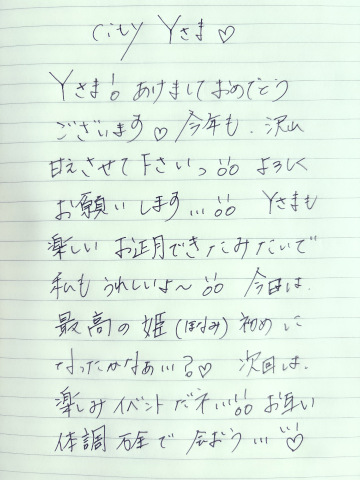 city Yさま♡
Yさま!! あけましておめでとう
ございます♡ 今年も、沢山
甘えさせて下さいっ!! よろしく
お願いします…!! Yさまも
楽しい お正月できたみたいで
私も うれしいよ〜!! 今日は、
最高の 姫(ほなみ) 初めに
なったかなぁ…?♡ 次回は、
楽しみイベントだネ…!! お互い
体調万全で 会おう…♡